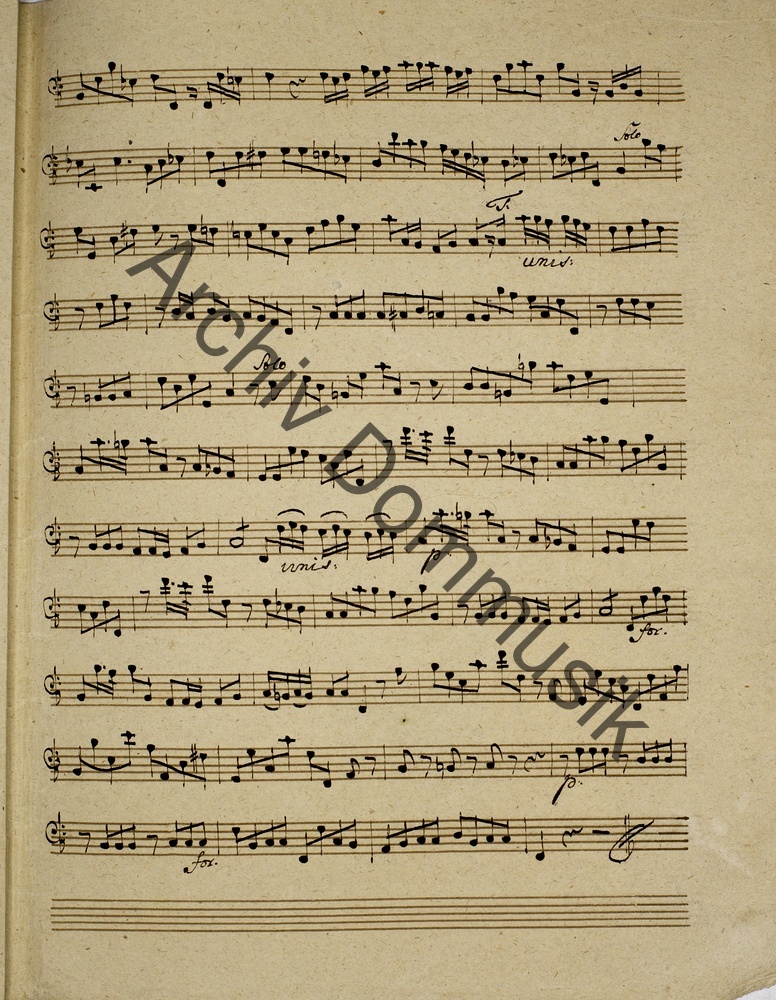 Solo
T.
unis:
Solo
unis:
p
for.
p.
for.
Archiv Dommusik